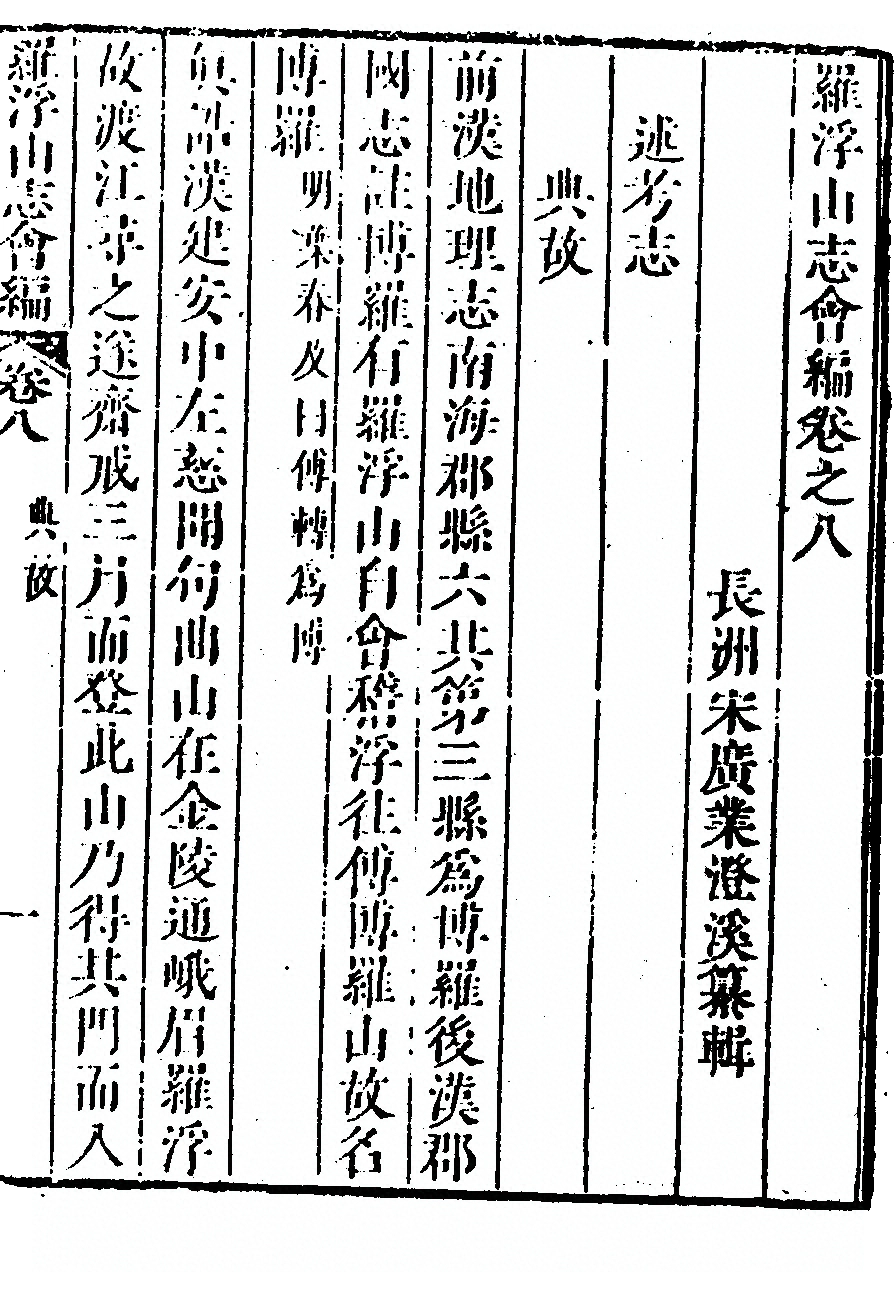 羅浮山志會編卷之八
長洲宋廣業澄溪纂輯
述考志
典故
前漢地理志南海郡縣六其第三縣為博羅後漢郡
國志註博羅有羅浮山自會稽浮往傅博羅山故名
博羅明梁春及曰傅轉為博
真誥漢建安中左慈聞句曲山在金陵通峨眉羅浮
故渡江尋之遂齋戒三月而登此山乃得其門而入
羅浮山志會編 卷八 典故 一